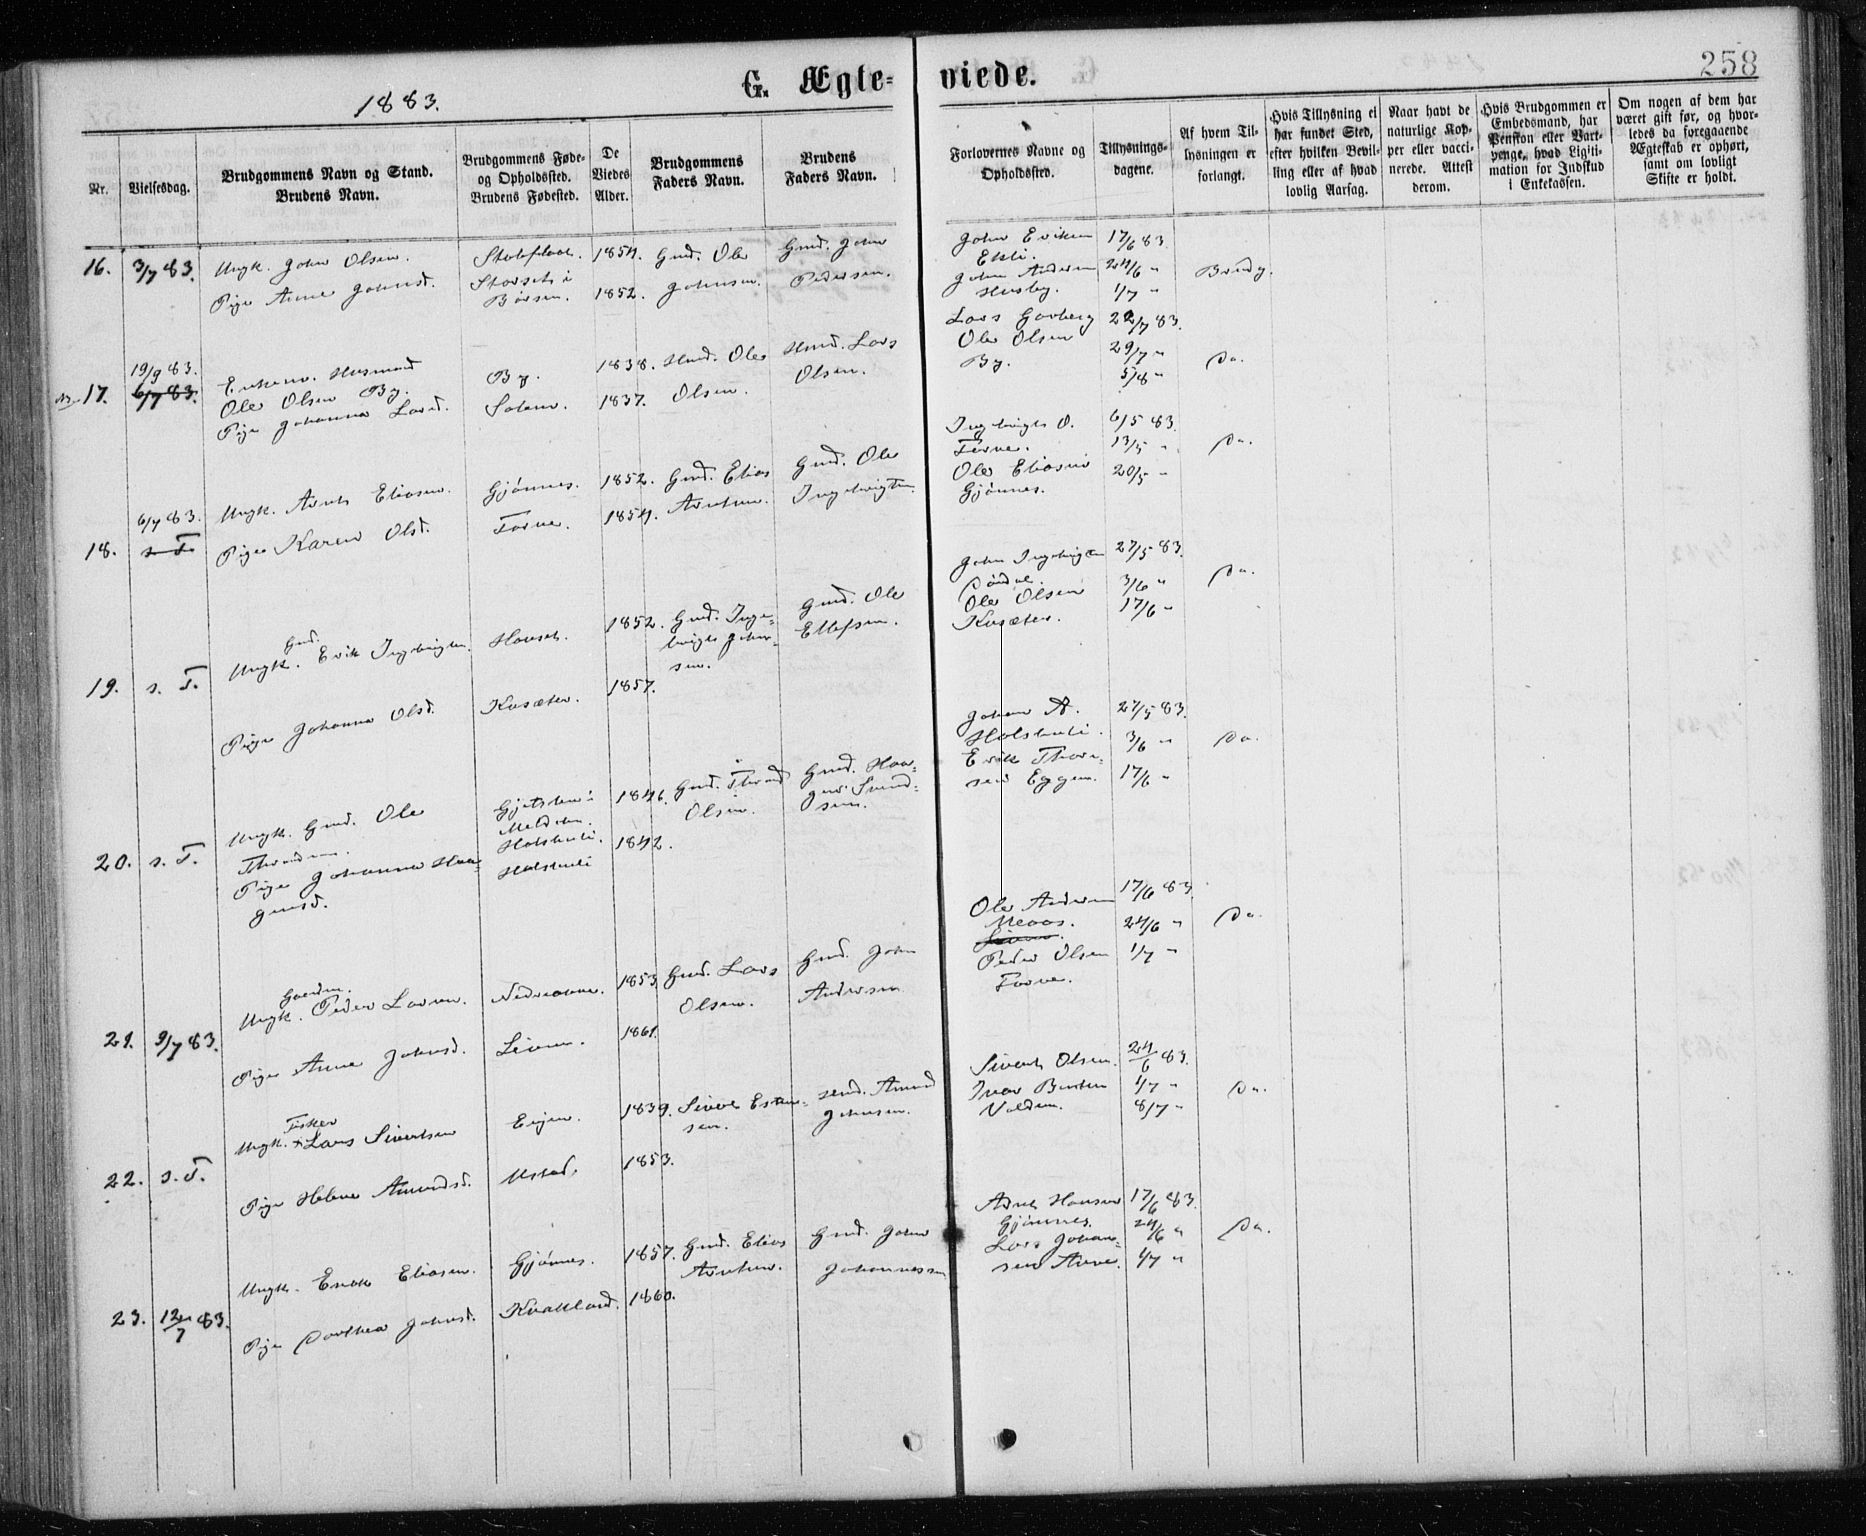 258
1883.
G. Ægte-
viede.
Nr.
Vielsesdag.
Brudgommens Navn og Stand.
Brudens Navn.
Brudgommens Føde-
og Opholdssted.
Brudens Fødested.
De
Viedes
Alder.
Brudgommens
Faders Navn.
Brudens
Faders Navn.
Forlovernes Navne og
Opholdssted.
Tillysnings-
dagene.
Af hvem Til-
lysningen er
forlangt.
Hvis Tillysning ei
har fundet Sted,
efter hvilken Bevil-
ling eller af hvad
lovlig Aarsag.
Naar havt de
naturlige Kop-
per eller vacci-
nerede. Attest
derom.
Hvis Brudgommen er
Embedsmand, har
Pension eller Vart-
penge, hvad Ligiti-
mation for Indskud
i Enkekassen.
Om nogen af dem har
været gift før, og hvor-
ledes da foregaaende
Ægteskab er ophørt,
samt om lovligt
Skifte er holdt.
16. 3/7 83. Ungk. John Olsen. 1854. Gmd. Ole Gmd. John
Pige Anne Johnsd. Børsen. 1852. Johnsen. Pedersen.
John Eriksen 17/6 83.
John Andersen 24/6 " Brudg.
Husby. 1/7 "
17. 19/9 83.
6/7 83.
Enkem. Husmand By. 1838. Husm. Ole Husm. Lars
Ole Olsen By.
Pige Johanna Larsd. Solem. 1837. Olsen. Olsen.
Lars Hovberg 22/7 83.
Ole Olsen 29/7 " Do.
By. 5/8 "
18. 6/7 83.
s. T.
Ungk. Arnt Eliasen. Gjønnes. 1852. Gmd. Elias Gmd. Ole
Pige Karen Olsd. Forve. 1854. Arntsen. Ingebrigtsen.
Ingebrigt O. 6/5 83.
Forve. 13/5 " Do.
Ole Eliasen 20/5 "
Gjønnes.
19. s. T. Gmd.
Ungk. Erik Ingebrigtsen. Hovset. 1852. Gmd. Inge- Gmd. Ole
brigt John- Ellefsen.
sen.
Pige Johanna Olsd. Kusæter. 1857.
John Ingebrigtsen 27/5 83.
3/6 " Do.
Ole Olsen 17/6 "
Kusæter.
20. s. T. Ungk. Gmd. Ole 1846. Gmd. Thrond Gmd. Haa-
Throndsen. Meldalen. Olsen. gen Svend-
sen.
Pige Johanna Haa- Holstuli. 1842.
gensd. Holstuli
Johan A. 27/5 83.
Holstuli. 3/6 " Do.
Erik Thore-
sen Eggen. 17/6 "
21. 9/7 83. Gaardm.
Ungk. Peder Larsen. 1853. Gmd. Lars Gmd. John
Olsen. Andersen
Pige Anne Johnsd. 1861.
Ole Andersen 17/6 83.
Meaas. 24/6 " Do.
Peder Olsen 1/7 "
Forve.
22. s. T. Fisker
Ungk. Lars Sivertsen 1839. Sivert Esten- Amund
sen. Johnsen.
Pige Helene Amundsd. Ustad. 1853.
Sivert Olsen. 24/6 83.
Ivar Bentsen 1/7 " Do.
Volden. 8/7 "
23. 12/7 83. Ungk. Erik Eliasen. Gjønnes. 1857. Gmd. Elias Gmd. John
Arntsen. Johannessen
Pige Dorthea Johnsd. Kvakland. 1860.
Arnt Hansen 17/6 83.
Gjønnes. 24/6 " Do.
Lars Johan-
sen Anve. 1/7 "